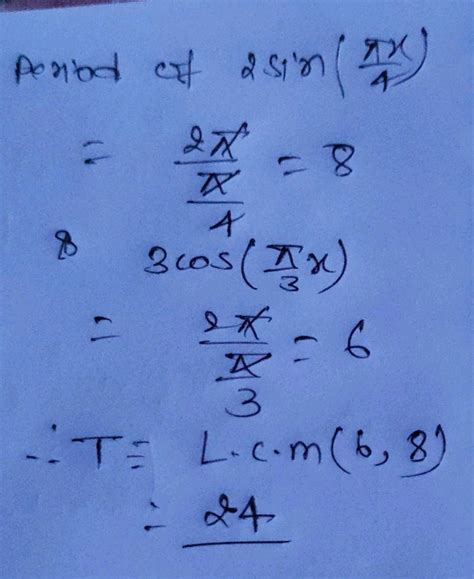 Period of 2 sin(πx/4)
= 2π/(π/4) = 8
& 3cos(π/3 x)
= 2π/(π/3) = 6
∴ T = L.c.m(6, 8)
= 24